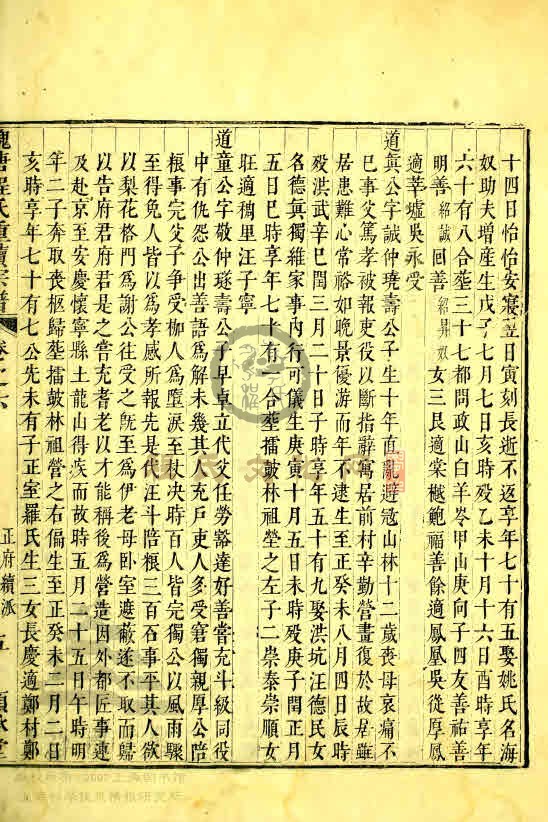 十四日怡怡安寢翌日寅刻長逝不返享年七十有五娶姚氏名海
奴助夫增産生戊子七月七日亥時殁乙未十月十六日酉時享年
六十有八合塟三十七都問政山白羊岺甲山庚向子四友善祐善
明善紹誠回善紹昇奴女三艮適棠樾鮑福善餘適鳳凰吳從厚鳳
適莘墟吳永受
道真公字誠仲琦壽公子生十年直亂避冦山林十二歲喪母哀痛不
巳事父篤孝被報吏役以斷指辭寓居前村辛勤營畫復於故居雖
居患難心常裕如晚景優游而年不逮生至正癸未八月四日辰時
殁洪武辛巳閏三月二十日子時享年五十有九娶洪坑汪德民女
名德真獨維家事内行可儀生庚寅十月五日未時殁庚子閏正月
五日巳時享年七十有一合塟擂皷林祖塋之左子二崇泰崇順女
旺適稠里汪子寧
道童公字敬仲璲壽公子早卓立代父任勞豁達好善甞充斗級同役
中有仇怨公出善語爲解未幾其人充戶吏人多受窘獨親厚公陪
粮事完父子争受柳人爲墮淚至杖决時百人皆完獨公以風雨驟
至得免人皆以爲孝感所報先是代汪斗陪粮三百石事平其人欲
以梨花格門爲謝公往受之既至爲伊老母卧室遮蔽遂不取而歸
以告府君府君是之甞充耆老以才能稱後爲營造因外都匠事連
及赴京至安慶懷寧縣土龍山得疾而故時五月二十五日午時明
年二子奔取喪柩歸塟擂皷林祖營之右偏生至正癸未二月二日
亥時享年七十有七公先未有子正室羅氏生三女長慶適鄭村鄭
槐塘程氏重續宗譜 卷之六 正府續派 五 顯承堂